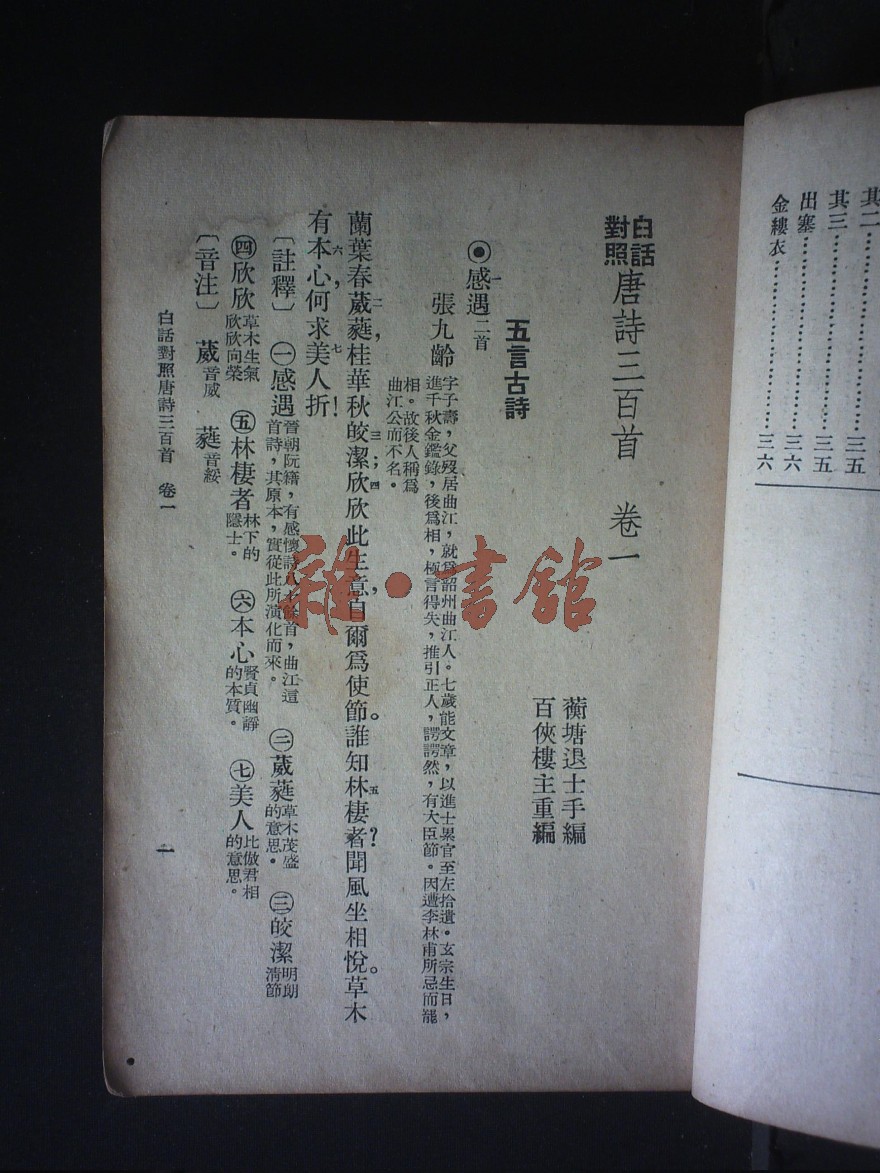 其二⋯⋯⋯⋯三五
其三⋯⋯⋯⋯三五
出塞⋯⋯⋯⋯三六
金縷衣⋯⋯⋯⋯三六
白話對照唐詩三百首　卷一
蘅塘退士手編
百俠樓主重編
五言古詩
◉感遇一二首
張九齡
字子壽，父歿居曲江，就爲韶州曲江人。七歲能文章，以進士累官至左拾遺。玄宗生日，
進千秋金鑑錄，後爲相，極言得失，推引正人，諤諤然，有大臣節。因遭李林甫所忌而罷
相。故後人稱爲
曲江公而不名。
蘭葉春葳蕤二，桂華秋皎潔三；欣欣四此生意，自爾爲使節。誰知林棲者五？聞風坐相悅。草木
有本心六，何求美人七折！
〔註釋〕　㊀感遇晉朝阮籍，有感懷詩八十餘首，曲江這首詩，其原本，實從此所演化而來。　㊁葳蕤草木茂盛的意思。　㊂皎潔明朗清節
㊃欣欣草木生氣欣欣向榮　㊄林棲者林下的隱士。　㊅本心賢貞幽靜的本質。　㊆美人比倣君相的意思。
〔音注〕　葳音威　蕤音綏
白話對照唐詩三百首　卷一
一
雜·書館